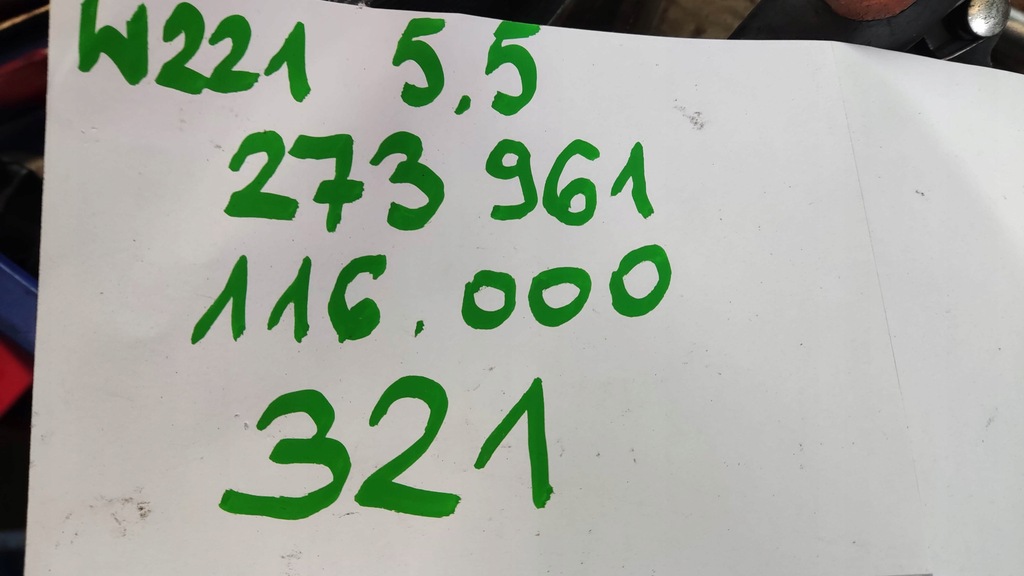 W221 5.5
273 961
116.000
321